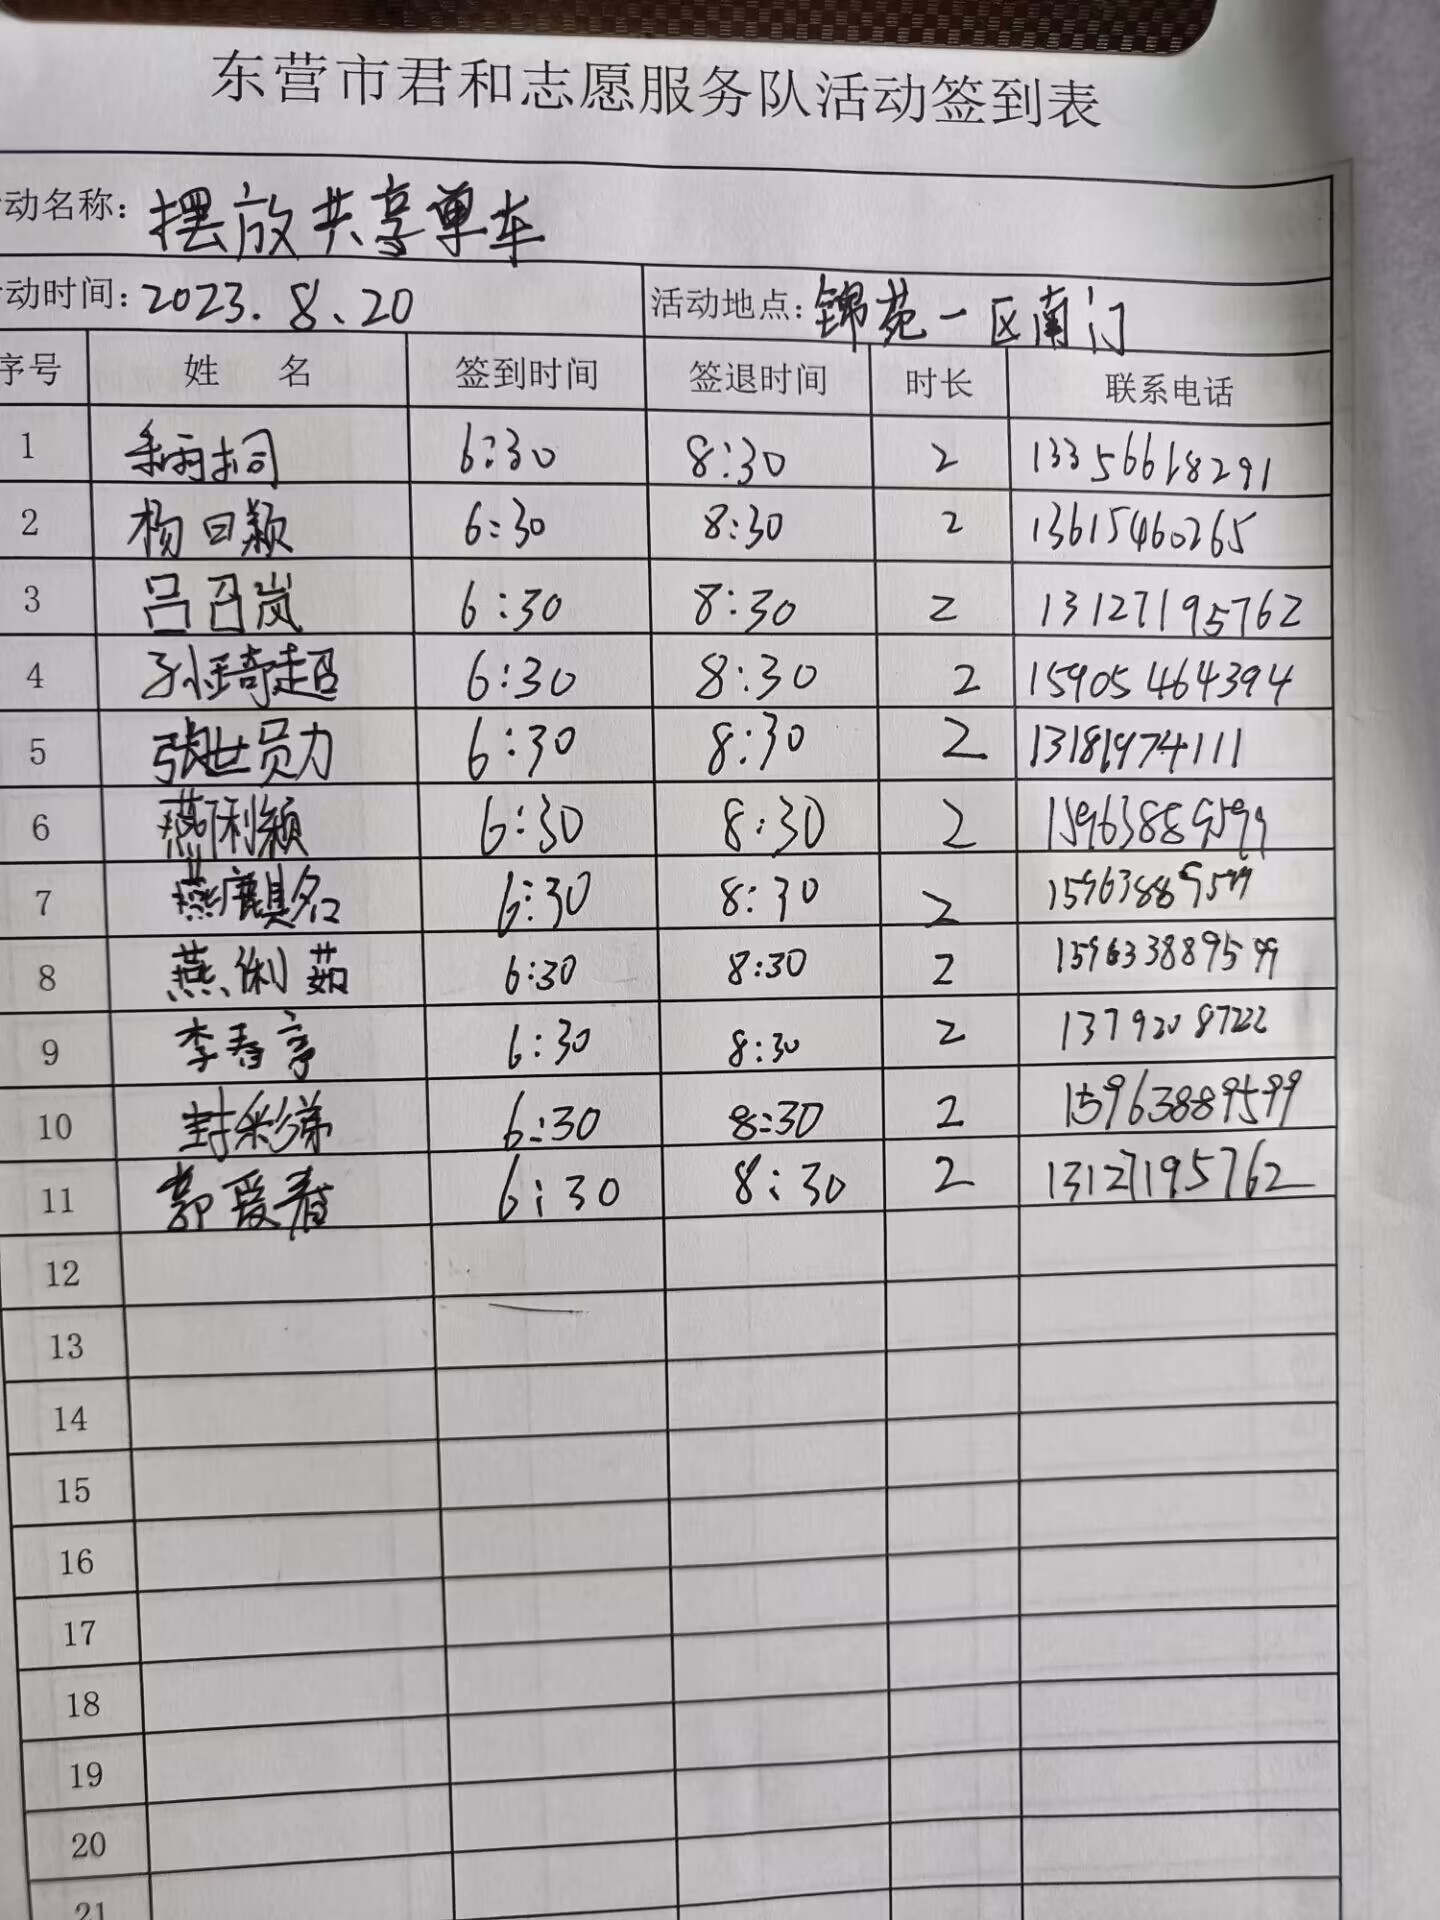 东营市君和志愿服务队活动签到表
动名称: 摆放共享单车
动时间: 2023.8.20 活动地点: 锦苑一区南门
序号 姓 名 签到时间 签退时间 时长 联系电话
1 6:30 8:30 2 13356618291
2 杨日颖 6:30 8:30 2 13615460265
3 吕召岚 6:30 8:30 2 13127195762
4 孙琦超 6:30 8:30 2 15905464394
5 张世员力 6:30 8:30 2 13181974111
6 燕俐颖 6:30 8:30 2 15963889599
7 燕麒名 6:30 8:30 2 15963889599
8 燕俐茹 6:30 8:30 2 15963889599
9 李春亭 6:30 8:30 2 13792087222
10 封彩弟 6:30 8:30 2 15963889599
11 郭爱春 6:30 8:30 2 13127195762
12
13
14
15
16
17
18
19
20
21